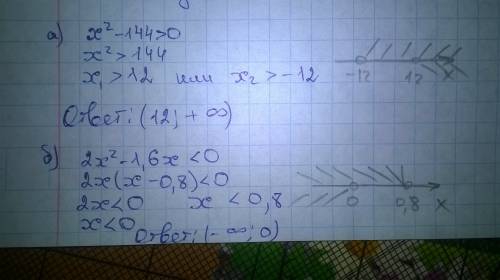 а) x²-144>0
x²>144
x₁>12 или x₂>-12
-12 12 x
Ответ: (12; +∞)
б) 2x²-1,6x<0
2x(x-0,8)<0
2x<0 x<0,8
0 0,8 x
x<0
Ответ: (-∞; 0)